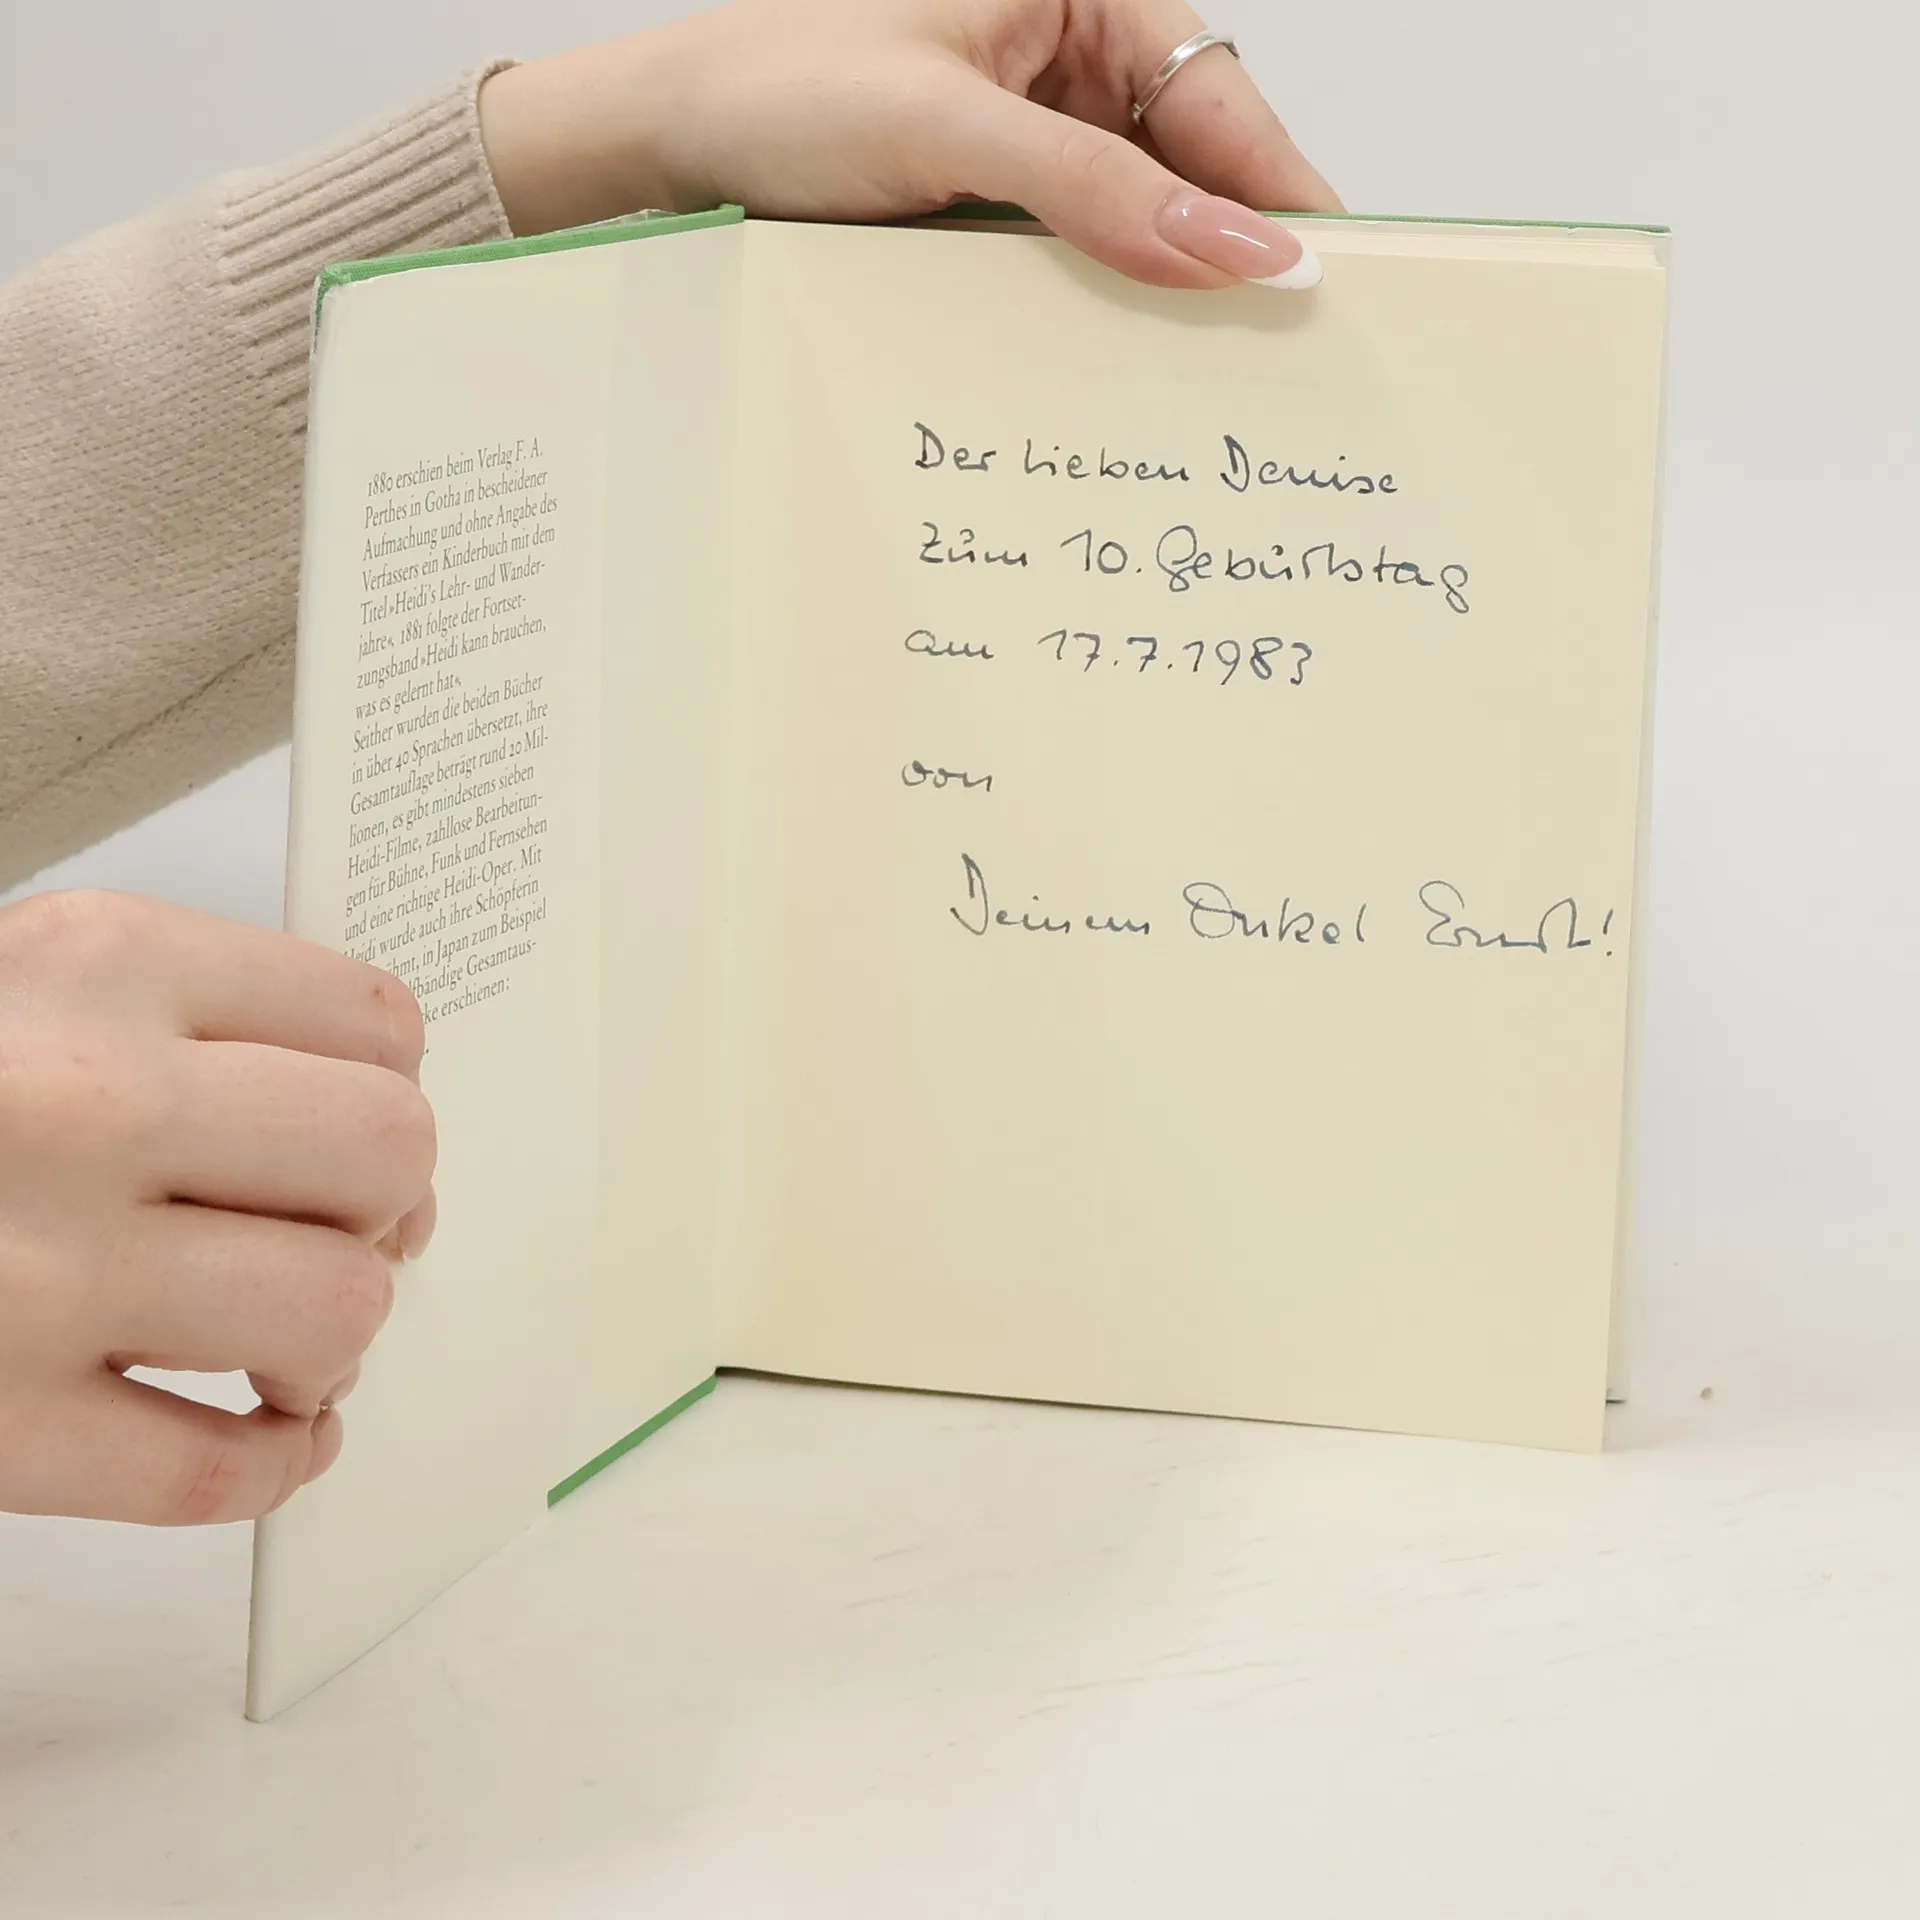 1880 erschien beim Verlag F. A.
Perthes in Gotha in bescheidener
Aufmachung und ohne Angabe des
Verfassers ein Kinderbuch mit dem
Titel »Heidi's Lehr- und Wander-
jahre«. 1881 folgte der Fortset-
zungsband »Heidi kann brauchen,
was es gelernt hat«.
Seither wurden die beiden Bücher
in über 40 Sprachen übersetzt, ihre
Gesamtauflage beträgt rund 20 Mil-
lionen, es gibt mindestens sieben
Heidi-Filme, zahllose Bearbeitun-
gen für Bühne, Funk und Fernsehen
und eine richtige Heidi-Oper. Mit
Heidi wurde auch ihre Schöpferin
hmt, in Japan zum Beispiel
bändige Gesamtaus-
ke erschienen:
Der lieben Denise
zum 10. Geburtstag
am 17.7.1983
von
Deinem Onkel Ernst!